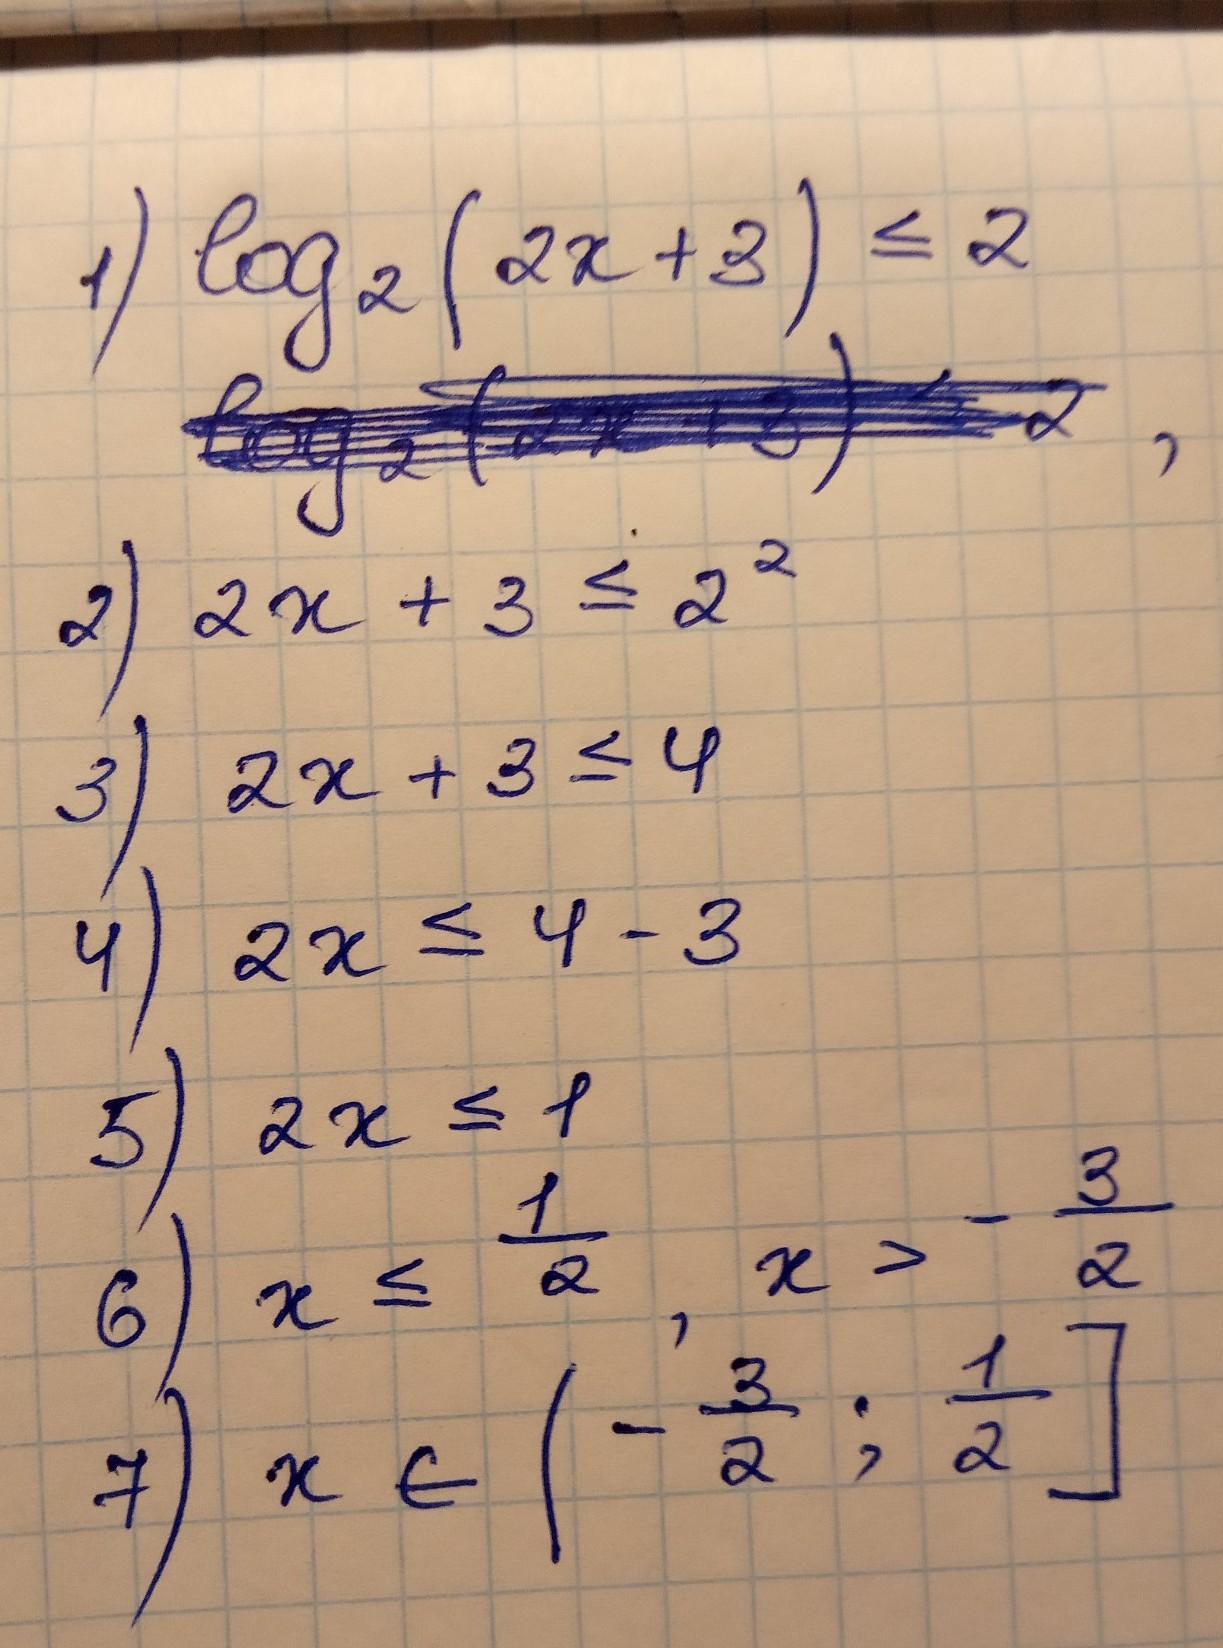 1) log₂(2x+3) ≤ 2
log₂(2x+3) ≤ 2,
2) 2x + 3 ≤ 2²
3) 2x + 3 ≤ 4
4) 2x ≤ 4 - 3
5) 2x ≤ 1
6) x ≤ 1/2, x > -3/2
7) x ∈ (-3/2; 1/2]